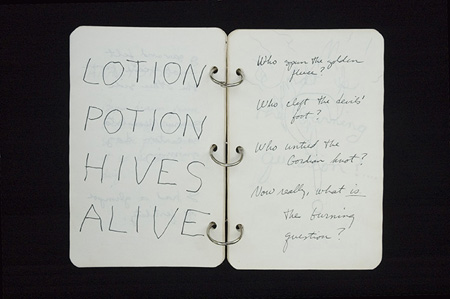 LOTION
POTION
HIVES
ALIVE
Who span the golden
fleece?
Who cleft the devils'
foot?
Who untied the
Gordian knot?
Now really, what is
the burning
question?